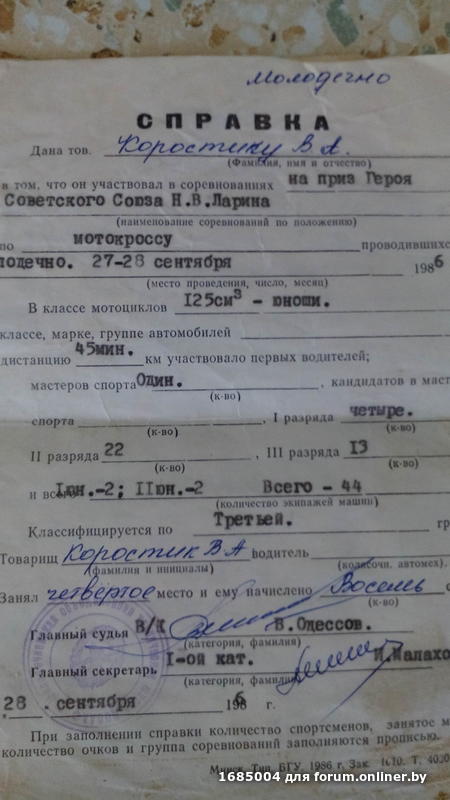 Молодечно
СПРАВКА
Дана тов. Коростику В А.
(Фамилия, имя и отчество)
в том, что он участвовал в соревнованиях на приз Героя
Советского Союза Н.В.Ларина
(наименование соревнований по положению)
по мотокроссу проводившихс
лодечно. 27-28 сентября 1986
(место проведения, число, месяц)
В классе мотоциклов 125см³ - юноши.
классе, марке, группе автомобилей
дистанцию 45мин. км участвовало первых водителей;
мастеров спорта Один. , кандидатов в маст
(к-во)
спорта , I разряда четыре.
(к-во) (к-во)
II разряда 22 , III разряда 13
(к-во) (к-во)
и всего Iюн.-2; IIюн.-2 Всего - 44
(количество экипажей машин)
Классифицируется по Третьей. гр
Товарищ Коростик В А водитель
(фамилия и инициалы) (колясочн. автомех).
Занял четвертое место и ему начислено Восемь о
(к-во)
Главный судья В/К В.Одессов.
(категория, фамилия)
Главный секретарь I-ой кат. И.Малахо
(категория, фамилия)
28 . сентября 1986 г.
При заполнении справки количество спортсменов, занятое м
количество очков и группа соревнований заполняются прописью.
Минск. Тип. БГУ. 1986 г. Зак. Т.
1685004 для forum.onliner.by